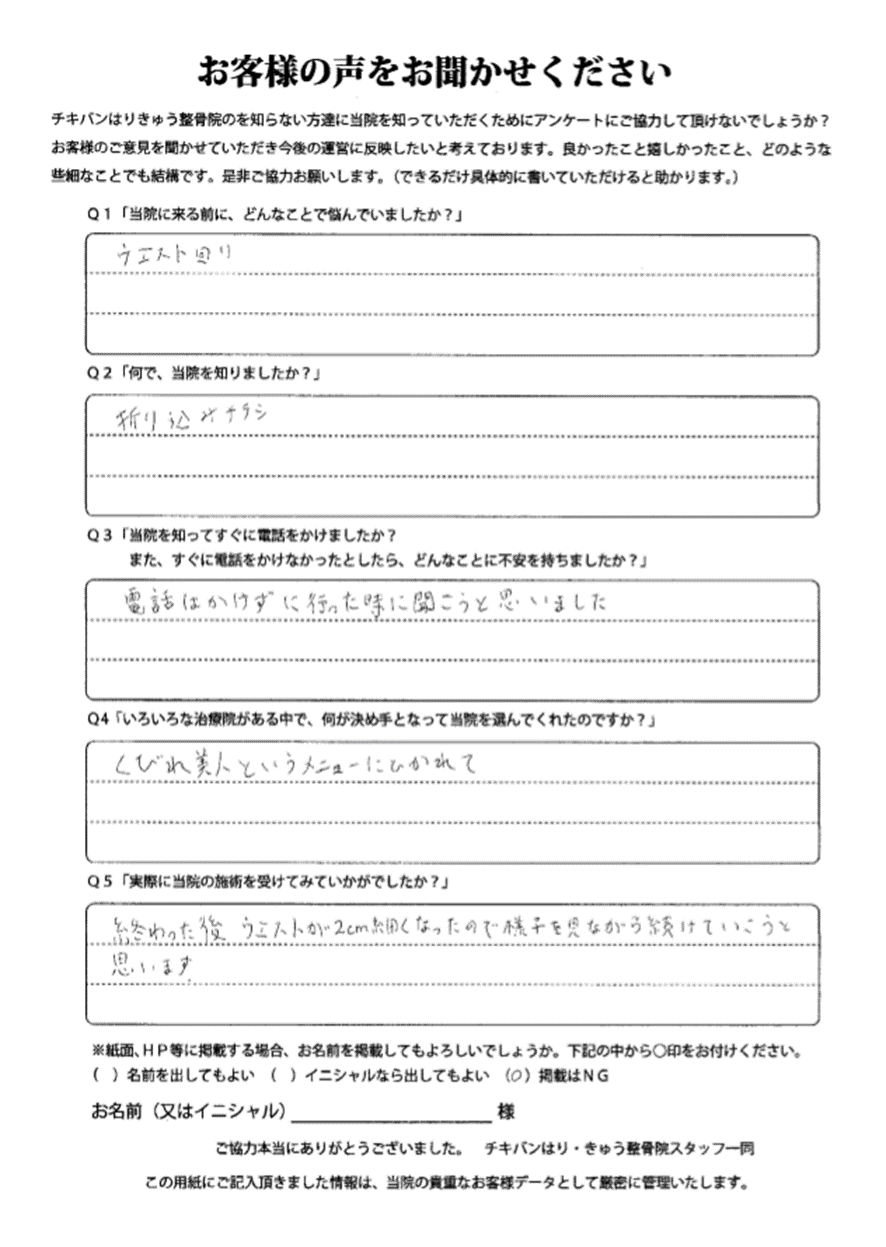 お客様の声をお聞かせください
チキバンはりきゅう整骨院のを知らない方達に当院を知っていただくためにアンケートにご協力して頂けないでしょうか？
お客様のご意見を聞かせていただき今後の運営に反映したいと考えております。良かったこと嬉しかったこと、どのような
些細なことでも結構です。是非ご協力お願いします。（できるだけ具体的に書いていただけると助かります。）
Ｑ１「当院に来る前に、どんなことで悩んでいましたか？」
ウエスト回り
Ｑ２「何で、当院を知りましたか？」
折り込みチラシ
Ｑ３「当院を知ってすぐに電話をかけましたか？
また、すぐに電話をかけなかったとしたら、どんなことに不安を持ちましたか？」
電話はかけずに行った時に聞こうと思いました
Q4「いろいろな治療院がある中で、何が決め手となって当院を選んでくれたのですか？」
くびれ美人というメニューにひかれて
Ｑ５「実際に当院の施術を受けてみていかがでしたか？」
終わった後 ウエストが2cm細くなったので様子を見ながら続けていこうと
思います
※紙面、ＨＰ等に掲載する場合、お名前を掲載してもよろしいでしょうか。下記の中から〇印をお付けください。
（ ）名前を出してもよい （ ）イニシャルなら出してもよい （○）掲載はＮＧ
お名前（又はイニシャル）＿＿＿＿＿＿＿＿＿＿様
ご協力本当にありがとうございました。 チキバンはり・きゅう整骨院スタッフ一同
この用紙にご記入頂きました情報は、当院の貴重なお客様データとして厳密に管理いたします。